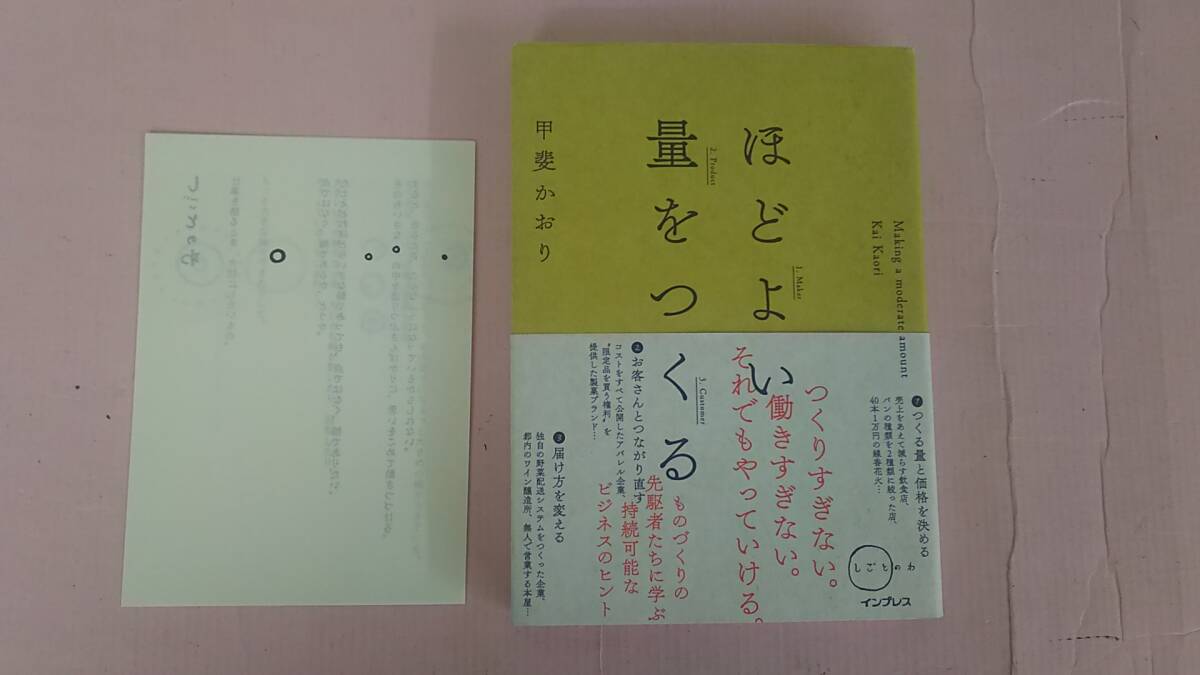 ほどよい
量をつくる
甲斐かおり
1. Maker
2. Product
3. Customer
Making a moderate amount
Kai Kaori
つくりすぎない。
働きすぎない。
それでもやっていける。
ものづくりの
先駆者たちに学ぶ
持続可能な
ビジネスのヒント
つくる量と価格を決める
売上をあえて減らす飲食店、
パンの種類を2種類に絞った店、
40本1万円の線香花火…
2 お客さんとつながり直す
コストをすべて公開したアパレル企業、
“限定品を買う権利”を
提供した製菓ブランド…
3 届け方を変える
独自の野菜配送システムをつくった企業、
都内のワイン醸造所、無人で営業する本屋…
しごとのわ
インプレス